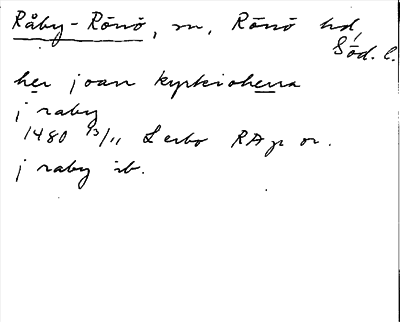 Råby-Rönö, sn, Rönö hd,
Söd. l.
her joan kyrkioherra
j raby
1480 13/11 Lerbo RAp or.
j raby ib.